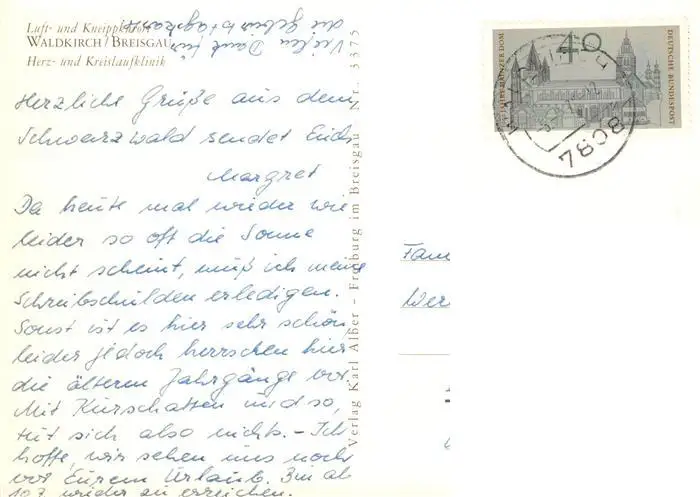 Luft- und Kneippkurort
WALDKIRCH/BREISGAU
Herz- und Kreislaufklinik
Vielen Dank für
die Geburtstagskarte
Herzliche Grüße aus dem
Schwarzwald sendet Euch
Margret
Da heute mal wieder wie
leider so oft die Sonne
nicht scheint, muß ich meine
Schreibschulden erledigen.
Sonst ist es hier sehr schön,
leider jedoch herrschen hier
die älteren Jahrgänge vor.
Mit Kurschatten und so,
tut sich also nichts. – Ich
hoffe, wir sehen uns noch
vor Eurem Urlaub. Bin ab
10.7. wieder zu erreichen.
Verlag Karl Alber – Freiburg im Breisgau Nr. 3375
40
DEUTSCHE BUNDESPOST
MAINZER DOM
7808
Fam
Wer